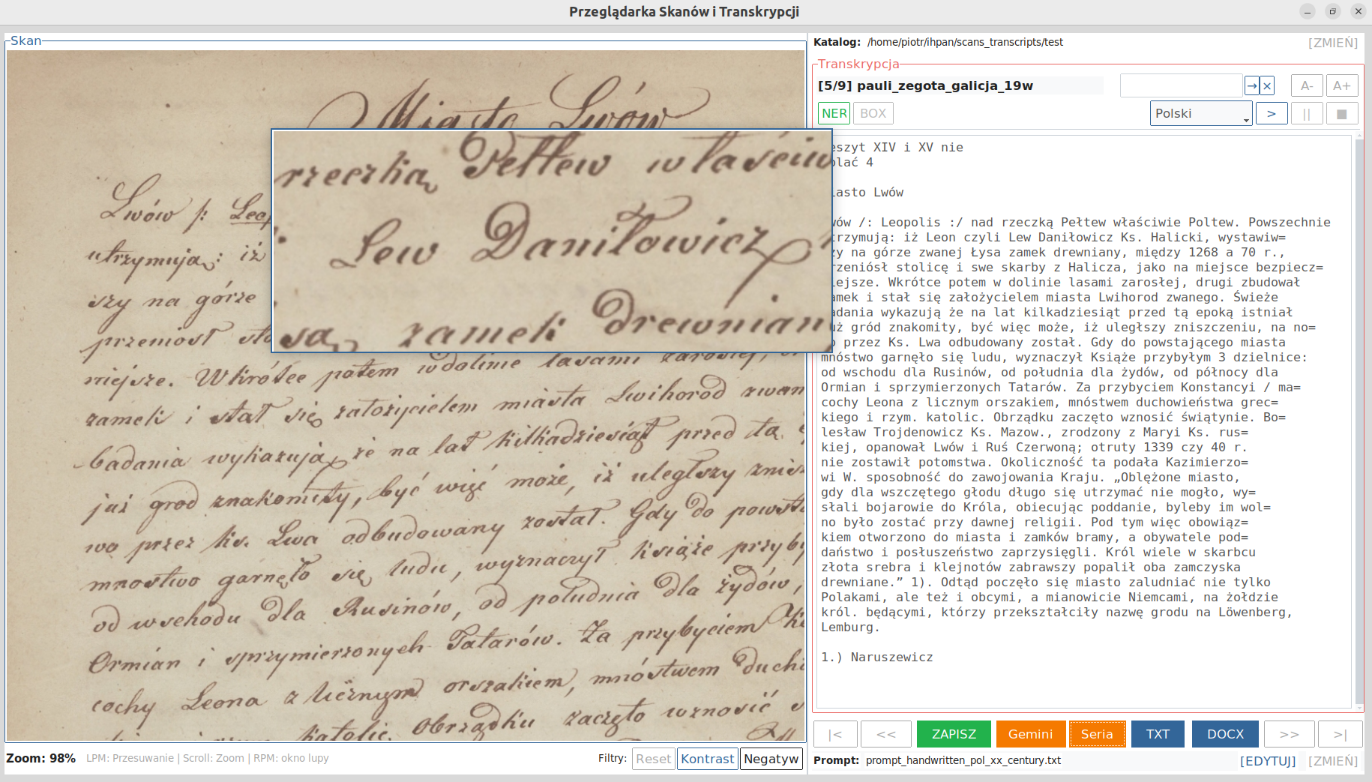 Przeglądarka Skanów i Transkrypcji
Skan
Miasto Lwów
Lwów /: Leop
utrzymują: iż
szy na górze
przeniósł sto
niejsze. Wkrótce potem w dolinie lasami zarosłej,
zamek i stał się założycielem miasta Lwihorod zwan
badania wykazują że na lat kilkadziesiąt przed tą
już grod znakomity, być więc może, iż uległszy znis
wo przez ks. Lwa odbudowany został. Gdy do powsta
mnóstwo garnęło się ludu, wyznaczył książe przyby
od wschodu dla Rusinów, od południa dla żydów,
Ormian i sprzymierzonych Tatarów. Za przybyciem
cochy Leona z licznym orszakiem, mnóstwem duch
katolic. Obrządku zaczęto wznosić
rzeczką Pełtew właściw
Lew Daniłowicz
sa zamek drewnian
Zoom: 98%
LPM: Przesuwanie | Scroll: Zoom | RPM: okno lupy
Filtry:
Reset
Kontrast
Negatyw
Katalog: /home/piotr/ihpan/scans_transcripts/test
[ZMIEŃ]
Transkrypcja
[5/9] pauli_zegota_galicja_19w
→ ×
A-
A+
NER
BOX
Polski
>
||
■
eszyt XIV i XV nie
lać 4
iasto Lwów
wów /: Leopolis :/ nad rzeczką Pełtew właściwie Poltew. Powszechnie
trzymują: iż Leon czyli Lew Daniłowicz Ks. Halicki, wystawiw=
zy na górze zwanej Łysa zamek drewniany, między 1268 a 70 r.,
rzeniósł stolicę i swe skarby z Halicza, jako na miejsce bezpiecz=
iejsze. Wkrótce potem w dolinie lasami zarosłej, drugi zbudował
amek i stał się założycielem miasta Lwihorod zwanego. Świeże
adania wykazują że na lat kilkadziesiąt przed tą epoką istniał
uż gród znakomity, być więc może, iż uległszy zniszczeniu, na no=
o przez Ks. Lwa odbudowany został. Gdy do powstającego miasta
mnóstwo garnęło się ludu, wyznaczył Książe przybyłym 3 dzielnice:
od wschodu dla Rusinów, od południa dla żydów, od północy dla
Ormian i sprzymierzonych Tatarów. Za przybyciem Konstancyi / ma=
cochy Leona z licznym orszakiem, mnóstwem duchowieństwa grec=
kiego i rzym. katolic. Obrządku zaczęto wznosić świątynie. Bo=
lesław Trojdenowicz Ks. Mazow., zrodzony z Maryi Ks. rus=
kiej, opanował Lwów i Ruś Czerwoną; otruty 1339 czy 40 r.
nie zostawił potomstwa. Okoliczność ta podała Kazimierzo=
wi W. sposobność do zawojowania Kraju. „Oblężone miasto,
gdy dla wszczętego głodu długo się utrzymać nie mogło, wy=
słali bojarowie do Króla, obiecując poddanie, byleby im wol=
no było zostać przy dawnej religii. Pod tym więc obowiąz=
kiem otworzono do miasta i zamków bramy, a obywatele pod=
daństwo i posłuszeństwo zaprzysięgli. Król wiele w skarbcu
złota srebra i klejnotów zabrawszy popalił oba zamczyska
drewniane.” 1). Odtąd poczęło się miasto zaludniać nie tylko
Polakami, ale też i obcymi, a mianowicie Niemcami, na żołdzie
król. będącymi, którzy przekształciły nazwę grodu na Löwenberg,
Lemburg.
1.) Naruszewicz
|<
<<
ZAPISZ
Gemini
Seria
TXT
DOCX
>>
>|
Prompt: prompt_handwritten_pol_xx_century.txt
[EDYTUJ]
[ZMIEŃ]